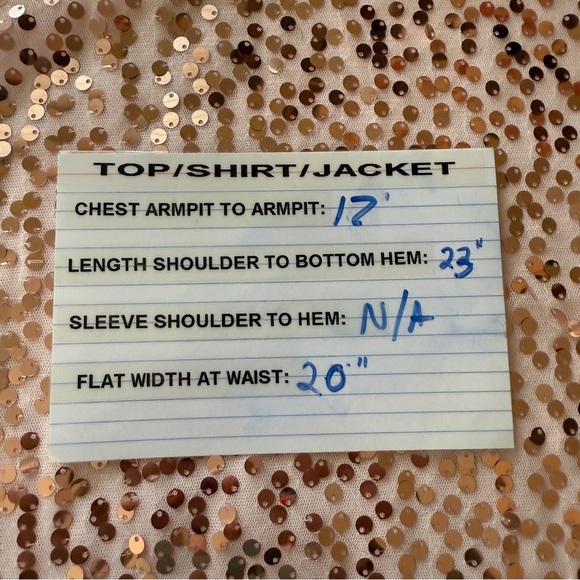 TOP/SHIRT/JACKET
CHEST ARMPIT TO ARMPIT: 17'
LENGTH SHOULDER TO BOTTOM HEM: 23"
SLEEVE SHOULDER TO HEM: N/A
FLAT WIDTH AT WAIST: 20"